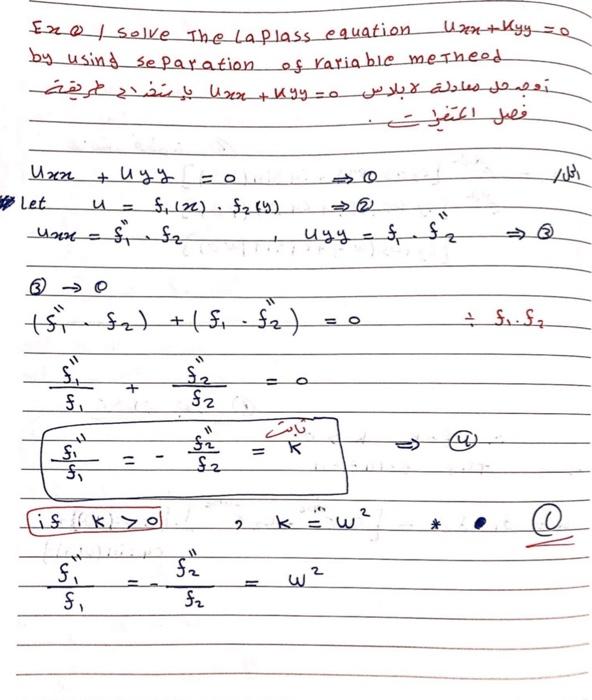 Ex② / solve The Laplass equation Uxx + Uyy = 0
by using separation of variable metheod
توجد حل معادلة لابلاس Uxx + Uyy = 0 بإستخدام طريقة
فصل المتغيرات.
الحل/
Uxx + Uyy = 0 ⇒ ①
Let u = f₁(x) . f₂(y) ⇒ ②
Uxx = f₁'' . f₂ , Uyy = f₁ . f₂'' ⇒ ③
③ → ①
(f₁'' . f₂) + (f₁ . f₂'') = 0 ÷ f₁.f₂
f₁''/f₁ + f₂''/f₂ = 0
f₁''/f₁ = - f₂''/f₂ = K ثابت ⇒ ④
if (K) > 0 , K = w² * • ①
f₁''/f₁ = - f₂''/f₂ = w²